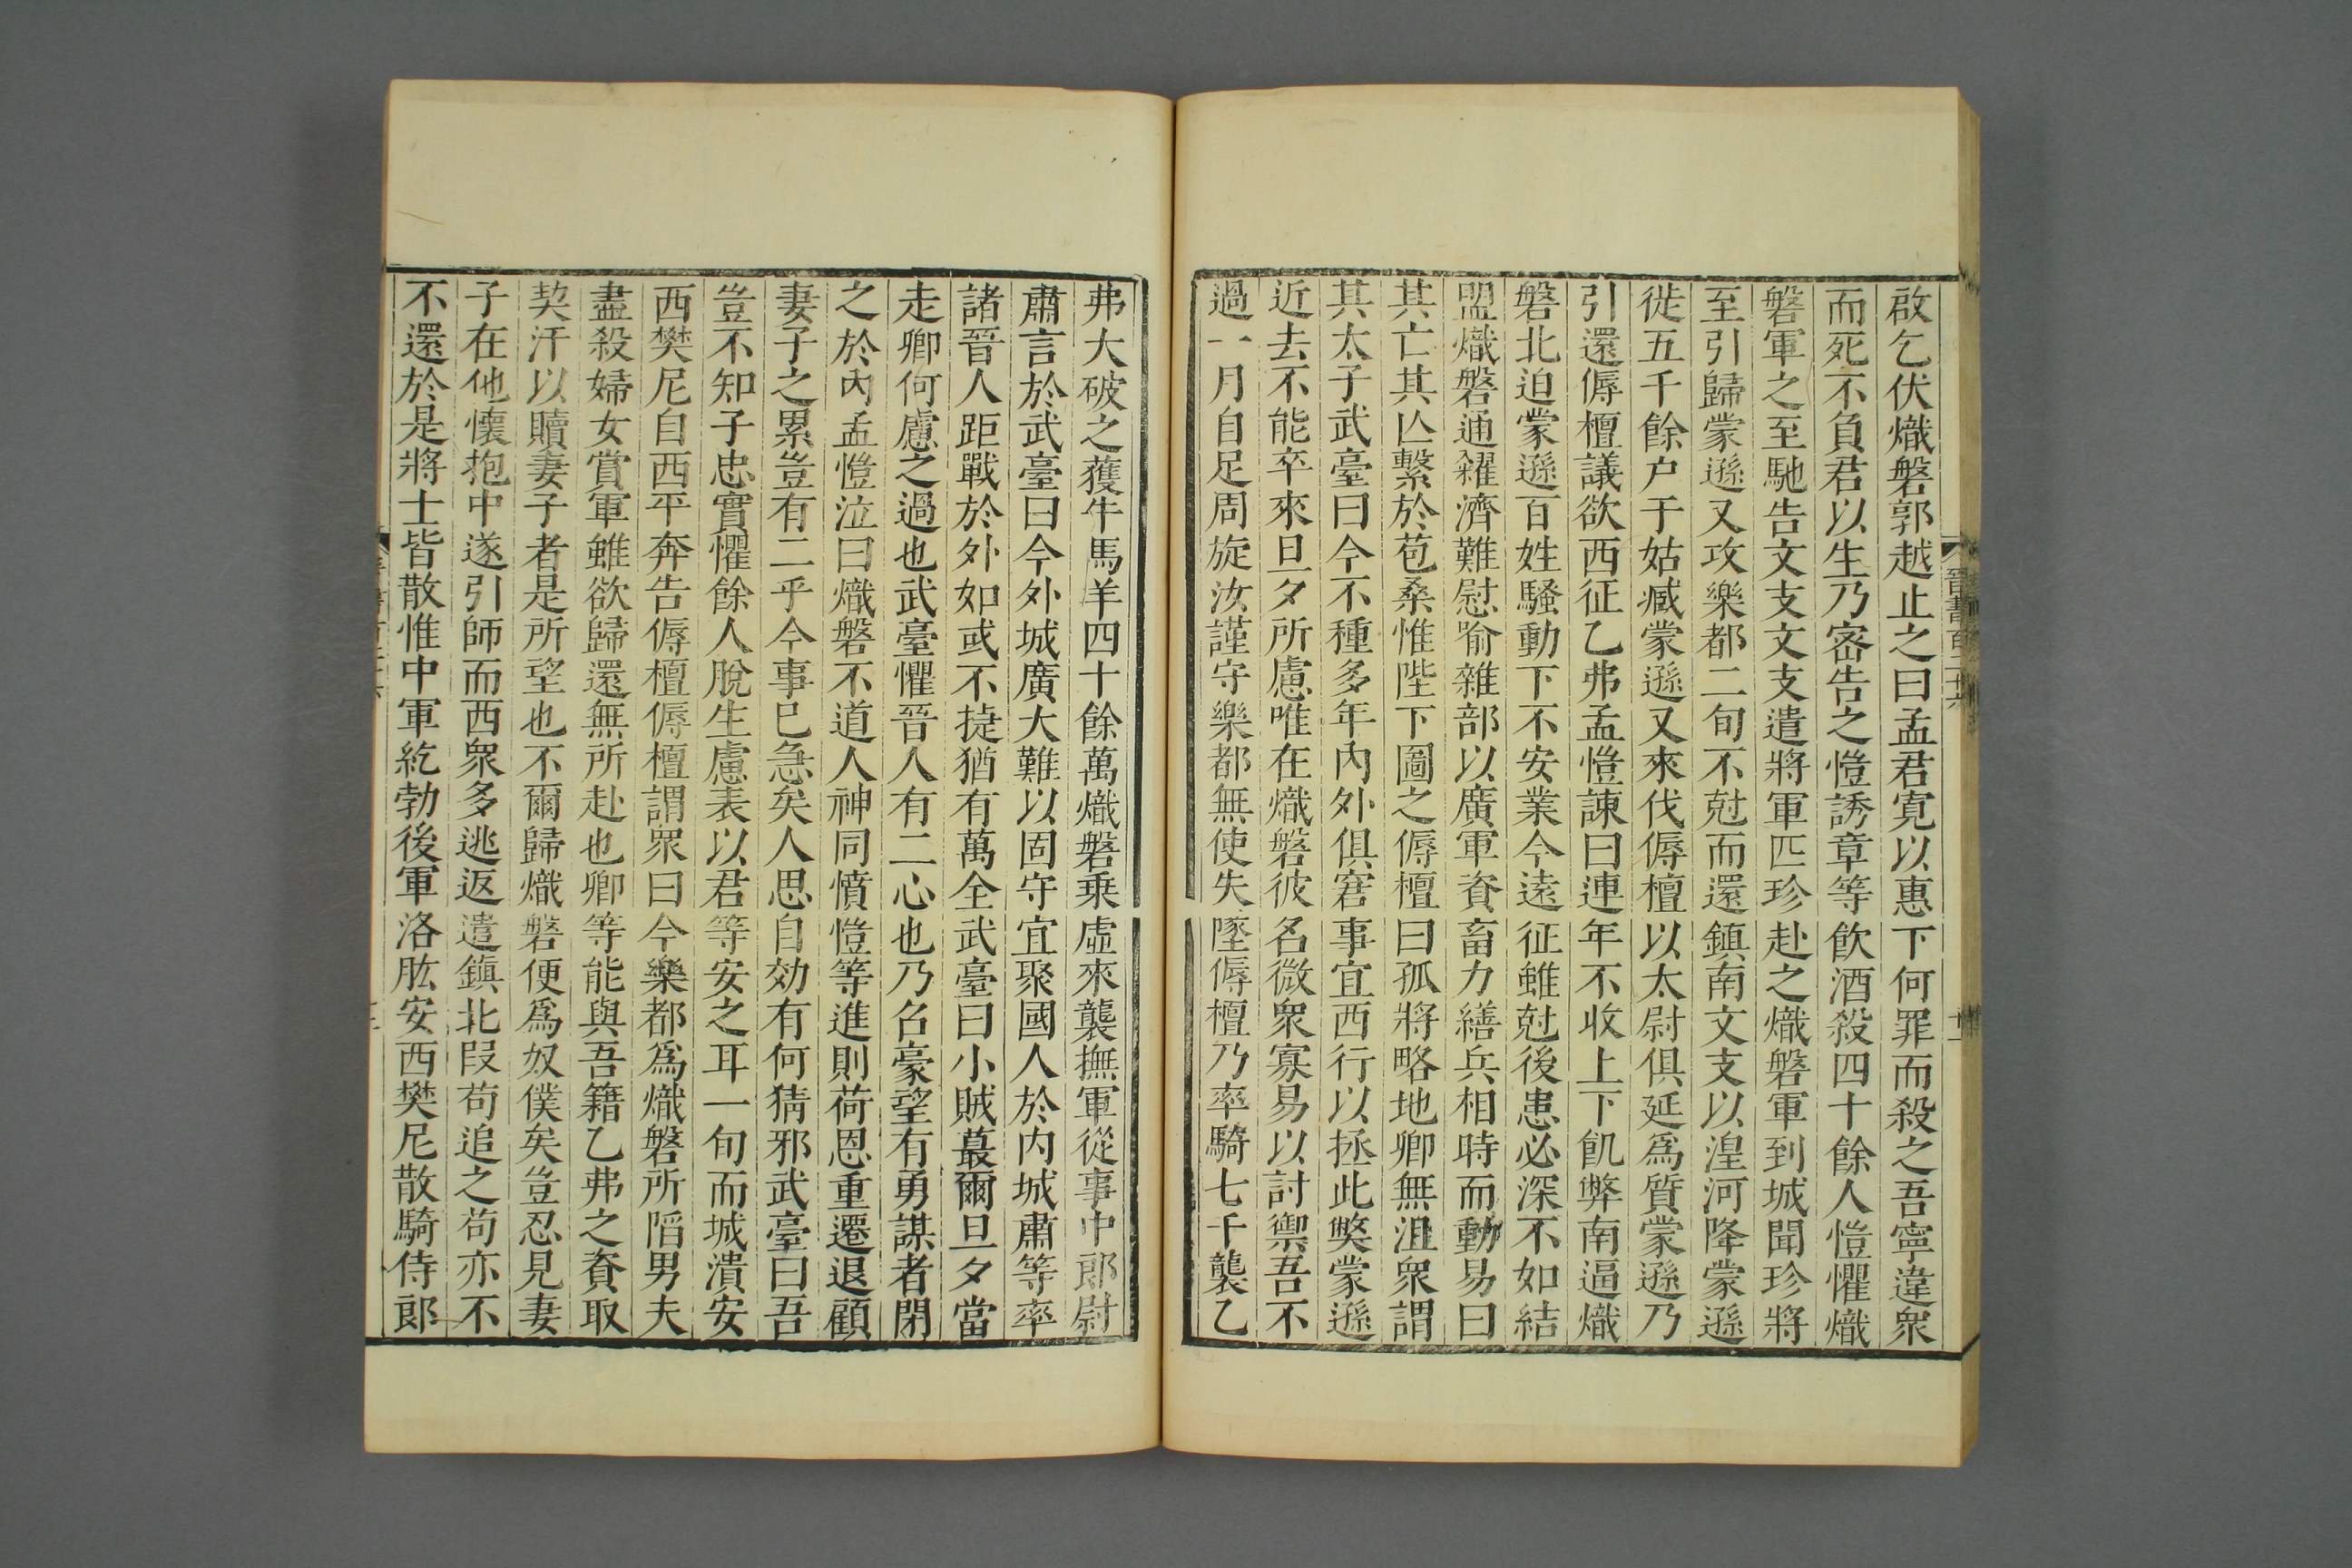 啟乞伏熾磐郭越止之曰孟君寬以惠下何罪而殺之吾寧違衆
而死不負君以生乃宻告之愷誘章等飲酒殺四十餘人愷懼熾
磐軍之至馳告文支文支遣將軍匹珍赴之熾磐軍到城聞珍將
至引歸蒙遜又攻樂都二旬不尅而還鎮南文支以湟河降蒙遜
徙五千餘户于姑臧蒙遜又來伐傉檀以太尉俱延爲質蒙遜乃
引還傉檀議欲西征乙弗孟愷諫曰連年不收上下飢弊南逼熾
磐北迫蒙遜百姓騷動下不安業今逺征雖尅後患必深不如結
盟熾磐通糴濟難慰喻雜部以廣軍資畜力繕兵相時而動易曰
其亡其亾繫於苞桑惟陛下圖之傉檀曰孤將略地卿無沮衆謂
其太子武臺曰今不種多年内外俱窘事宜西行以拯此弊蒙遜
近去不能卒來旦夕所慮唯在熾磐彼名微衆寡易以討禦吾不
過一月自足周旋汝謹守樂都無使失墜傉檀乃率騎七千襲乙
晉書百二十六
十一
弗大破之獲牛馬羊四十餘萬熾磐乗虛來襲撫軍從事中郎尉
肅言於武臺曰今外城廣大難以固守宜聚國人於内城肅等率
諸晉人距戰於外如或不捷猶有萬全武臺曰小賊蕞爾旦夕當
走卿何慮之過也武臺懼晉人有二心也乃召豪望有勇謀者閉
之於内孟愷泣曰熾磐不道人神同憤愷等進則荷恩重遷退顧
妻子之累豈有二乎今事已急矣人思自効有何猜邪武臺曰吾
豈不知子忠實懼餘人脫生慮表以君等安之耳一旬而城潰安
西樊尼自西平奔告傉檀傉檀謂衆曰今樂都爲熾磐所陷男夫
盡殺婦女賞軍雖欲歸還無所赴也卿等能與吾籍乙弗之資取
契汗以贖妻子者是所望也不爾歸熾磐便爲奴僕矣豈忍見妻
子在他懷抱中遂引師而西衆多逃返遣鎮北段苟追之苟亦不
不還於是將士皆散惟中軍紇勃後軍洛肱安西樊尼散騎侍郎